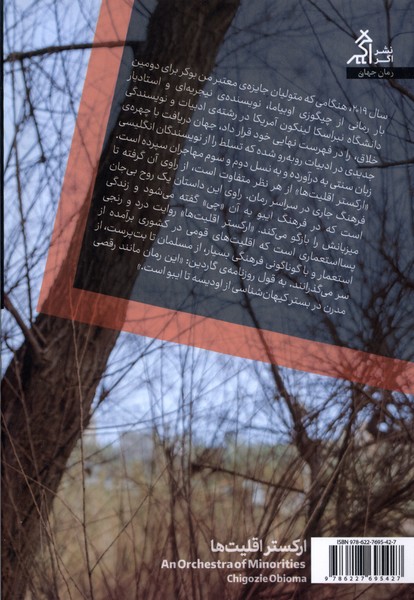 نشر
اگر
رمان جهان
سال ۲۰۱۹، هنگامی که متولیان جایزه‌ی معتبر من بوکر برای دومین
بار رمانی از چیگوزی اوبیاما، نویسنده‌ی نیجریه‌ای و استادیار
دانشگاه نبراسکا لینکون آمریکا در رشته‌ی ادبیات و نویسندگی
خلاق، را در فهرست نهایی خود قرار داد، جهان دریافت با چهره‌ی
جدیدی در ادبیات روبه‌رو شده که تسلط را از نویسندگان انگلیسی
زبان سنتی به درآورده و به نسل دوم و سوم مهاجران سپرده است.
«ارکستر اقلیت‌ها» از هر نظر متفاوت است، از راوی آن گرفته تا
فرهنگ جاری در سراسر رمان. راوی این داستان یک روح بی‌جان
است که در فرهنگ ایبو به آن «چی» گفته می‌شود و زندگی
میزبانش را بازگو می‌کند. «ارکستر اقلیت‌ها» روایت درد و رنجی
پسااستعماری است که اقلیت‌های قومی در کشوری برآمده از
استعمار و با گوناگونی فرهنگی بسیار، از مسلمان تا بت‌پرست، از
سر می‌گذرانند. به قول روزنامه‌ی گاردین: «این رمان مانند رقصی
مدرن در بستر کیهان‌شناسی از اودیسه تا ایبو است.»
ارکستر اقلیت‌ها
An Orchestra of Minorities
Chigozie Obioma
ISBN 978-622-7695-42-7
9 786227 695427